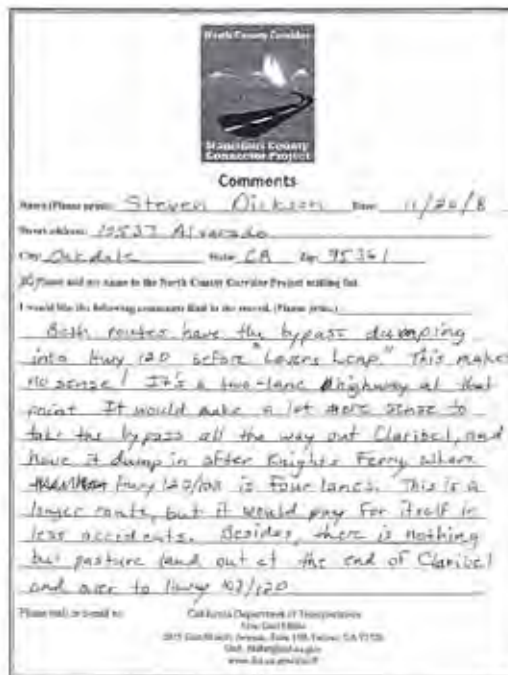 North County Corridor
Stanislaus County
Connector Project
Comments
Name (Please print): Steven Dickson Date: 11/20/8
Street address: Alvarado
City: Oakdale State: CA Zip: 95361
Please add my name to the North County Corridor Project mailing list.
I would like the following comments filed in the record. (Please print.)
Both routes have the bypass dumping
into Hwy 120 before "Lovers Leap." This makes
no sense! It's a two-lane highway at that
point It would make a lot more sense to
take the bypass all the way out Claribel, and
have it dump in after Knights Ferry where
Hwy 120/108 is four lanes. This is a
longer route, but it would pay for itself in
less accidents. Besides, there is nothing
but pasture land out at the end of Claribel
and over to Hwy 108/120
Please mail or e-mail to: California Department of Transportation
Avenue, Suite Fresno, CA 93726